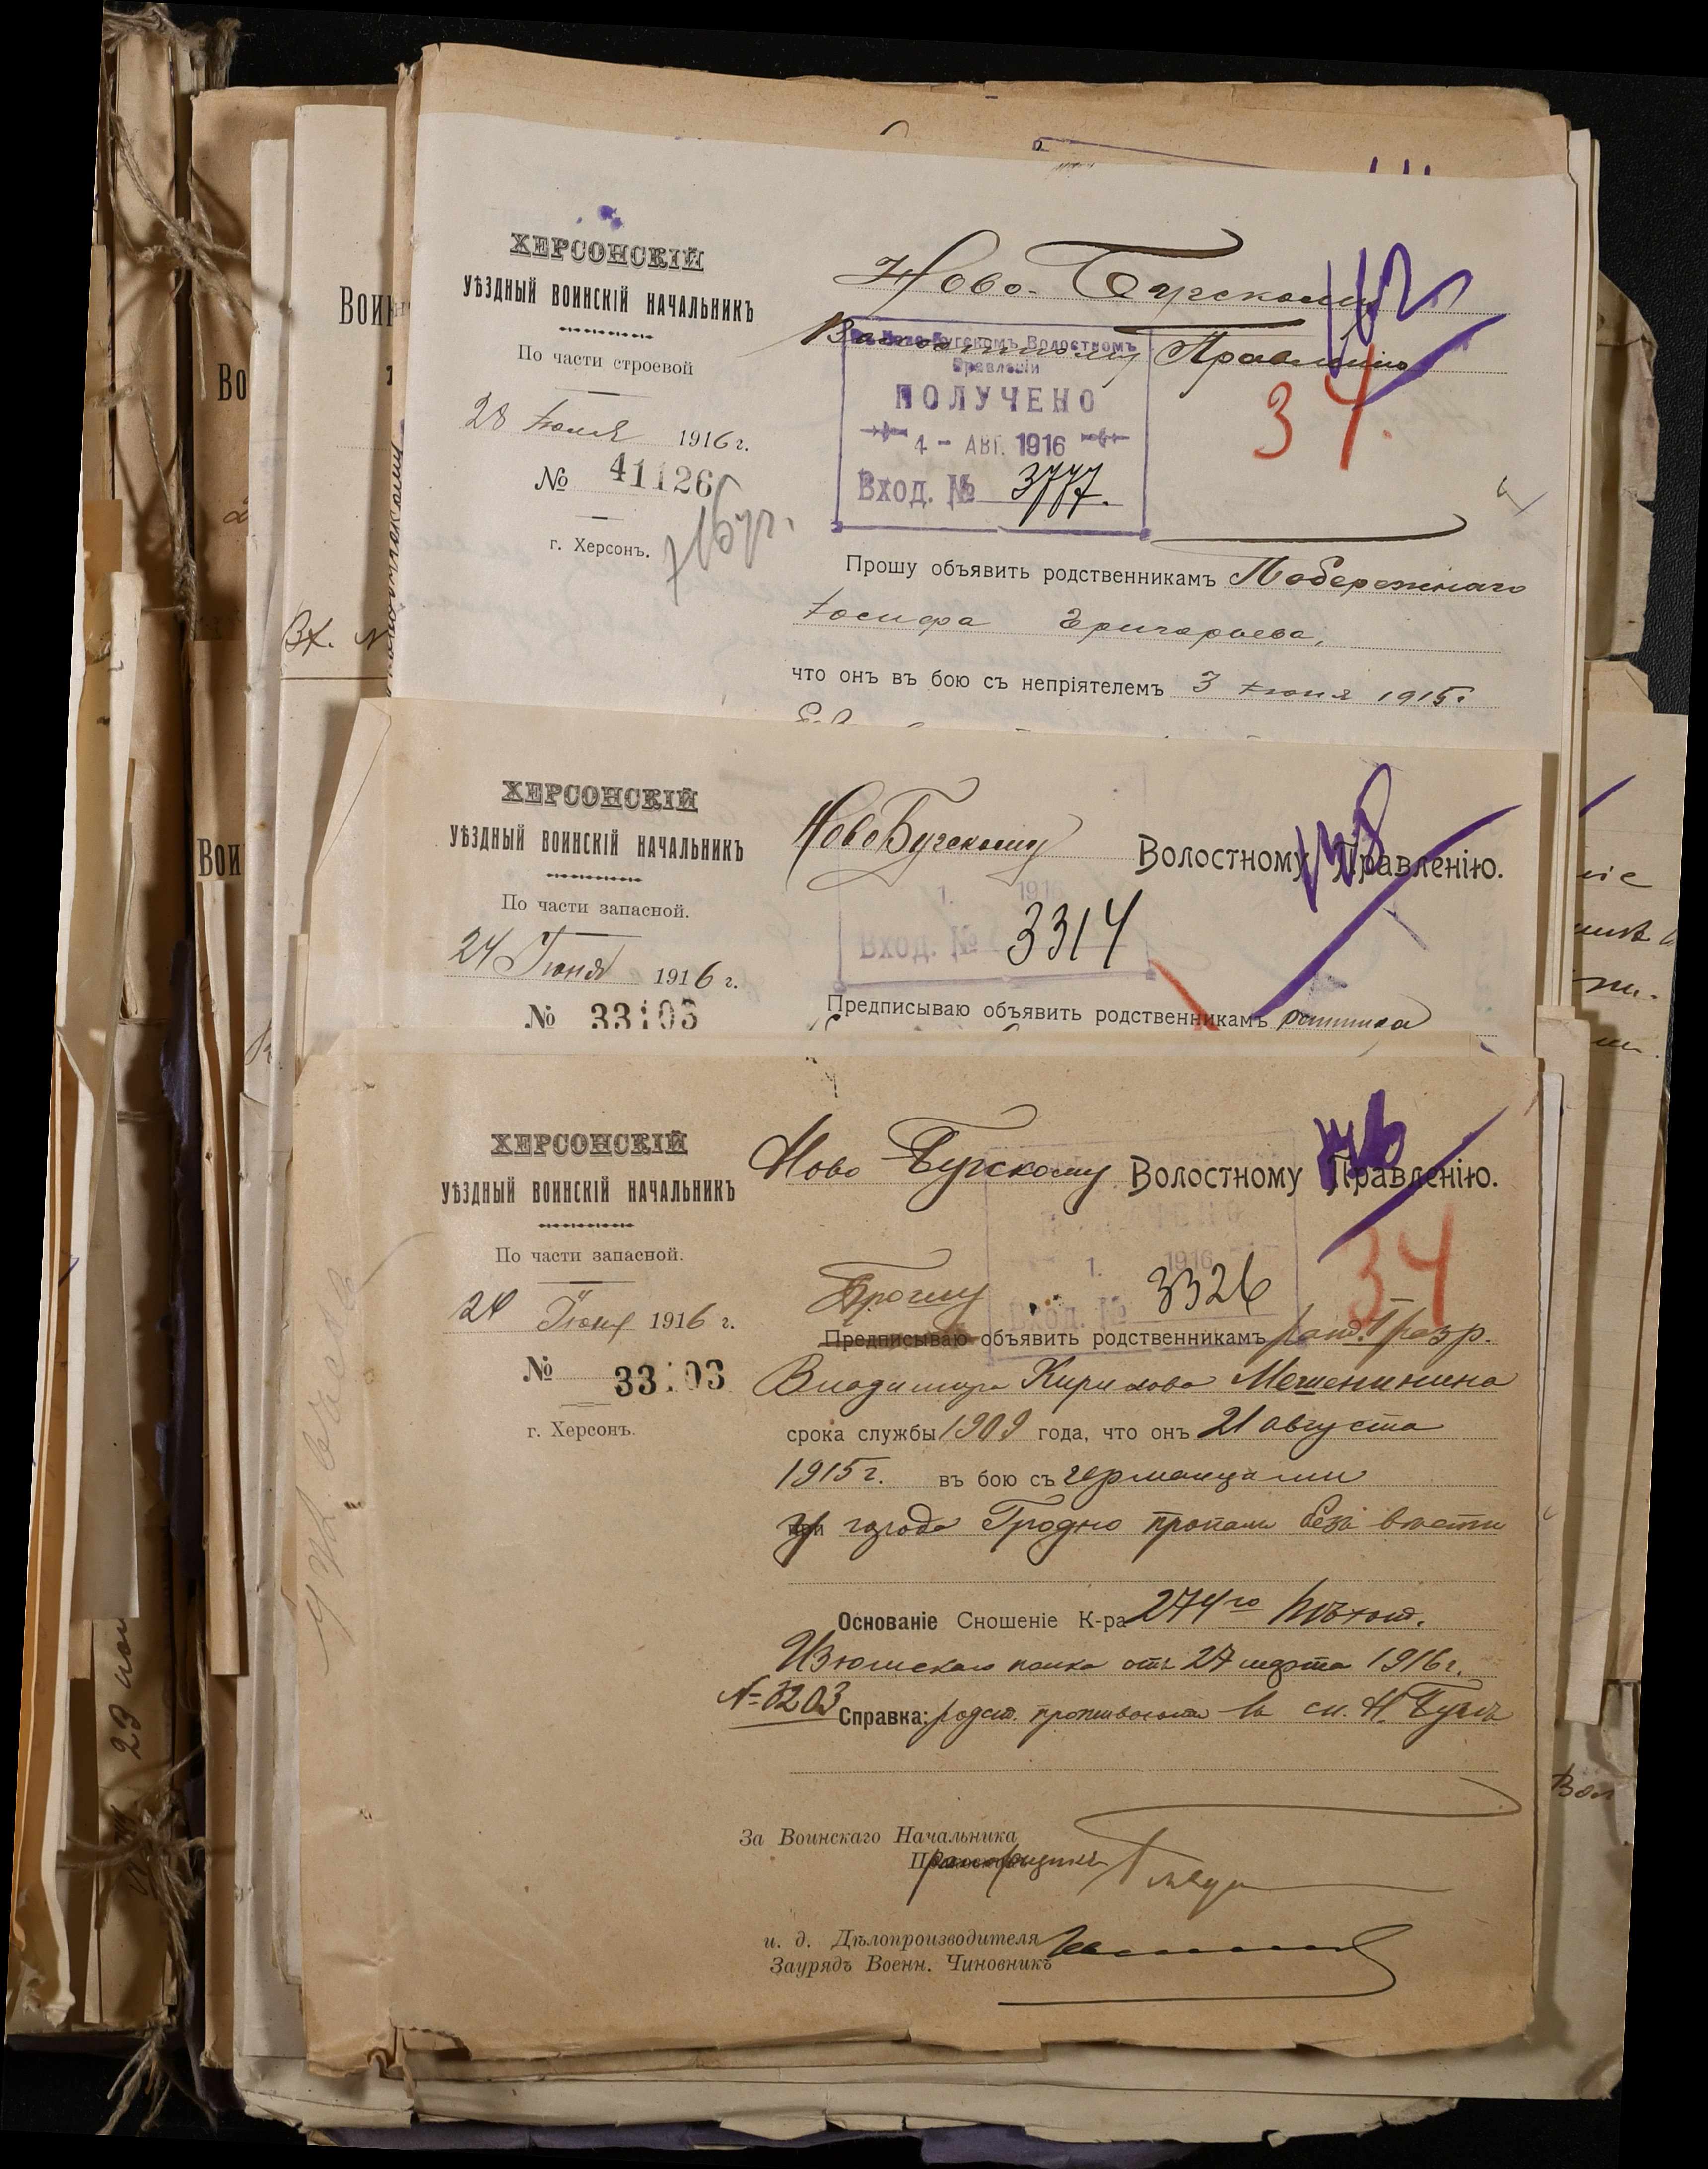 ХЕРСОНСКІЙ
УѢЗДНЫЙ ВОИНСКІЙ НАЧАЛЬНИКЪ
По части строевой
28 Іюля 1916 г.
№ 41126
г. Херсонъ.
Ново-Бугскому
Волостному Правленію
Ново-Бугскомъ Волостномъ
Правленіи
ПОЛУЧЕНО
4 - АВГ. 1916
Вход. № 3777.
34.
Прошу объявить родственникамъ Побережнаго
Іосифа Григорьева,
что онъ въ бою съ непріятелемъ 3 Іюня 1915 г
ХЕРСОНСКІЙ
УѢЗДНЫЙ ВОИНСКІЙ НАЧАЛЬНИКЪ
По части запасной.
24 Іюня 1916 г.
№ 33103
НовоБугскому Волостному Правленію.
1. 1916
Вход. № 3314
Предписываю объявить родственникамъ ратника
ХЕРСОНСКІЙ
УѢЗДНЫЙ ВОИНСКІЙ НАЧАЛЬНИКЪ
По части запасной.
24 Іюня 1916 г.
№ 33103
г. Херсонъ.
Ново Бугскому Волостному Правленію.
34
1. 1916
Вход. № 3326
Прошу
Предписываю объявить родственникамъ рат. 1 разр.
Владимира Кирилова Мешенинина
срока службы 1909 года, что онъ 21 августа
1915 г. въ бою съ германцами
при города Гродно пропалъ безъ вѣсти
Основаніе Сношеніе К-ра 274го Пѣхот.
Изюмскаго полка отъ 27 марта 1916 г.
№ 3203
Справка: родст. проживаютъ въ сл. Н. Бугъ
За Воинскаго Начальника
и. д. Дѣлопроизводителя
Заурядъ Военн. Чиновникъ
Воин
Во
Вои
Вх. №
23
Вол